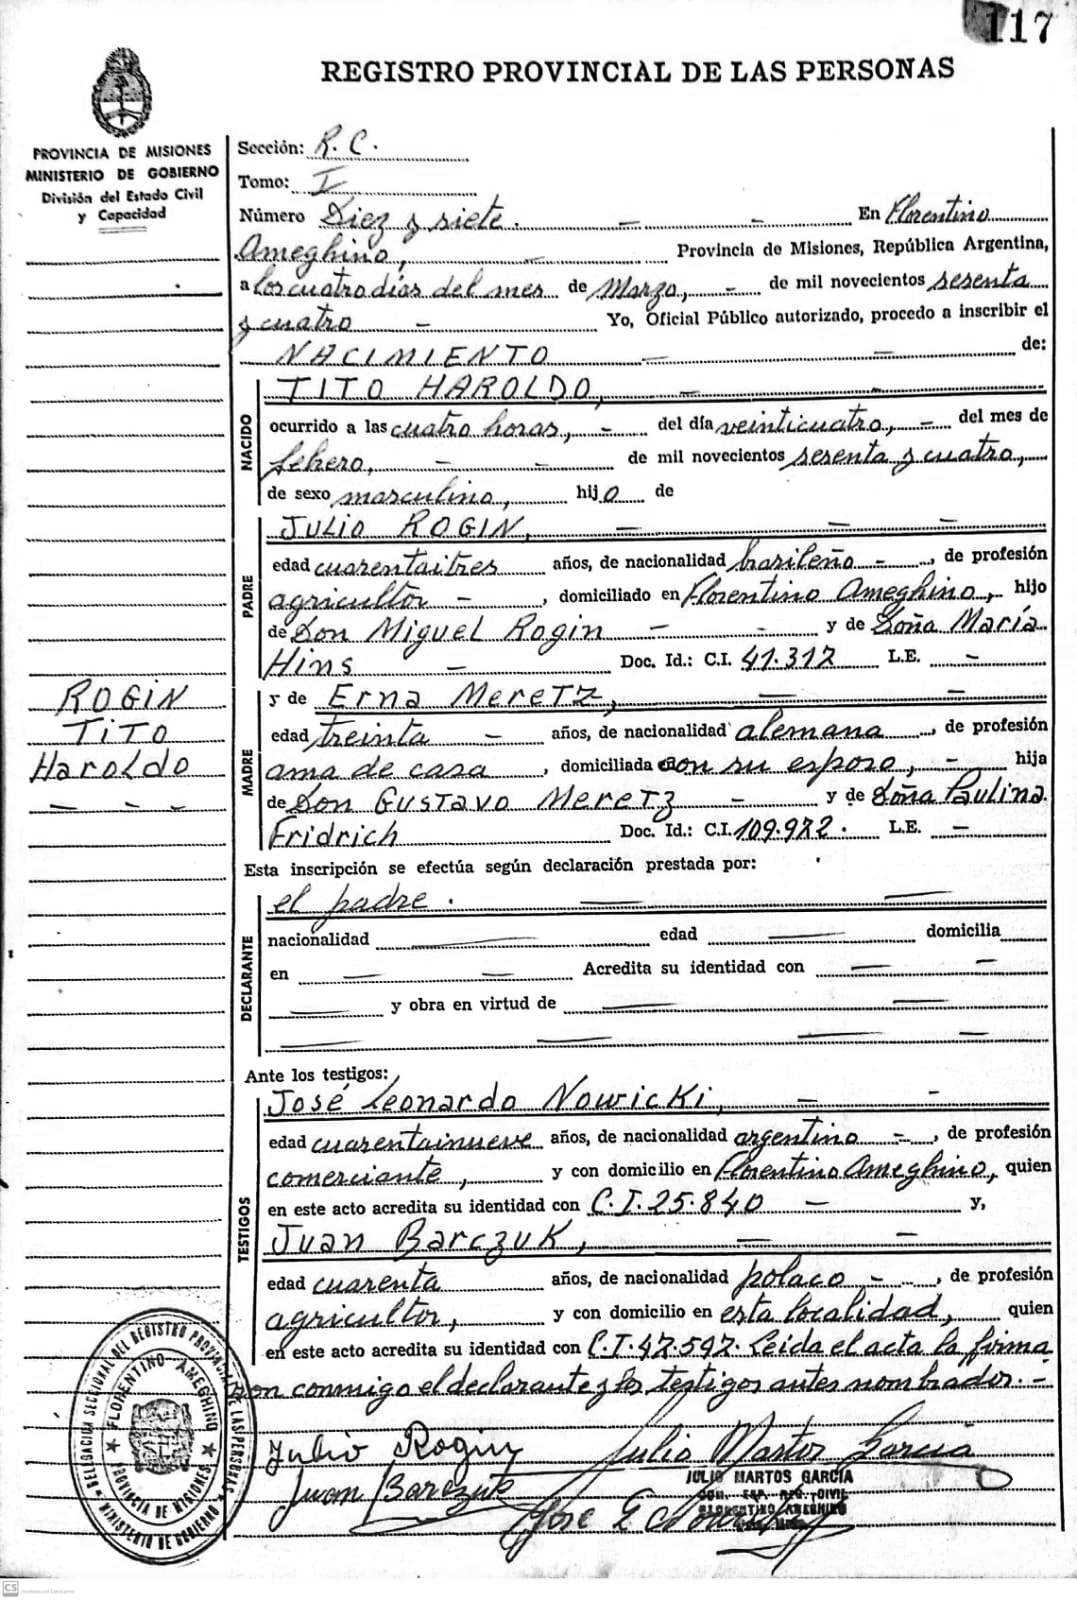 117
REGISTRO PROVINCIAL DE LAS PERSONAS
PROVINCIA DE MISIONES
MINISTERIO DE GOBIERNO
División del Estado Civil
y Capacidad
Sección: R. C.
Tomo: I
Número Diez y siete. — — En Florentino
Ameghino, — Provincia de Misiones, República Argentina,
a los cuatro días del mes de Marzo, — de mil novecientos sesenta
y cuatro — Yo, Oficial Público autorizado, procedo a inscribir el
NACIMIENTO — — de:
NACIDO
TITO HAROLDO, — —
ocurrido a las cuatro horas, — del día veinticuatro, — del mes de
febrero, — — de mil novecientos sesenta y cuatro,
de sexo masculino, hijo de
PADRE
JULIO ROGIN, — — —
edad cuarentaitres años, de nacionalidad brasileño — , de profesión
agricultor — , domiciliado en Florentino Ameghino, hijo
de Don Miguel Rogin — — y de Doña María
Hins — Doc. Id.: C.I. 41.317 L.E. —
ROGIN
TITO
Haroldo
— — —
MADRE
y de Erna Meretz, — —
edad treinta — años, de nacionalidad alemana , de profesión
ama de casa , domiciliada con su esposo, — hija
de Don Gustavo Meretz — y de Doña Paulina
Fridrich Doc. Id.: C.I. 109.972. L.E. —
Esta inscripción se efectúa según declaración prestada por:
DECLARANTE
el padre. — —
nacionalidad — edad — domicilia
en — — Acredita su identidad con — —
— y obra en virtud de — —
— — — —
Ante los testigos:
TESTIGOS
José Leonardo Nowicki, — —
edad cuarentainueve años, de nacionalidad argentino — , de profesión
comerciante, y con domicilio en Florentino Ameghino, quien
en este acto acredita su identidad con C.I. 25.840 — y,
Juan Barczuk, — —
edad cuarenta años, de nacionalidad polaco — , de profesión
agricultor, y con domicilio en esta localidad, quien
en este acto acredita su identidad con C.I. 47.597. Leída el acta la firma
con conmigo el declarante y los testigos antes nombrados. —
Julio Rogin Julio Martos García
JULIO MARTOS GARCÍA
REG. CIVIL
FLORENTINO AMEGHINO
Juan Barczuk
Jose L Nowicki
DELEGACIÓN SECCIONAL DEL REGISTRO PROVINCIAL DE LAS PERSONAS
MINISTERIO DE GOBIERNO
FLORENTINO AMEGHINO
PROVINCIA DE MISIONES
CS